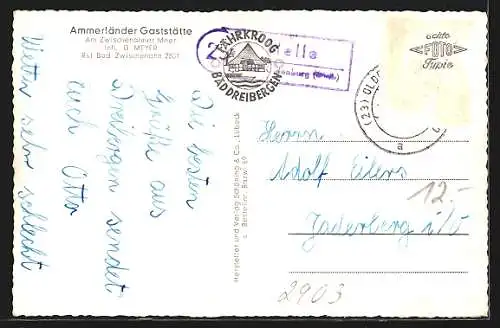 Ammerländer Gaststätte
Am Zwischenahner Meer
Inh. G. MEYER
Ruf Bad Zwischenahn 2501
FÄHRKROOG
BAD DREIBERGEN
23
elle
enburg
echte
FOTO
Typie
(23) OLD
a
Die besten
Grüße aus
Dreibergen sendet
auch Otto
Wetter sehr schlecht
Hersteller und Verlag Schöning & Co., Lübeck
Herrn
Adolf Eilers
Jaderberg i/O
12.-
2903